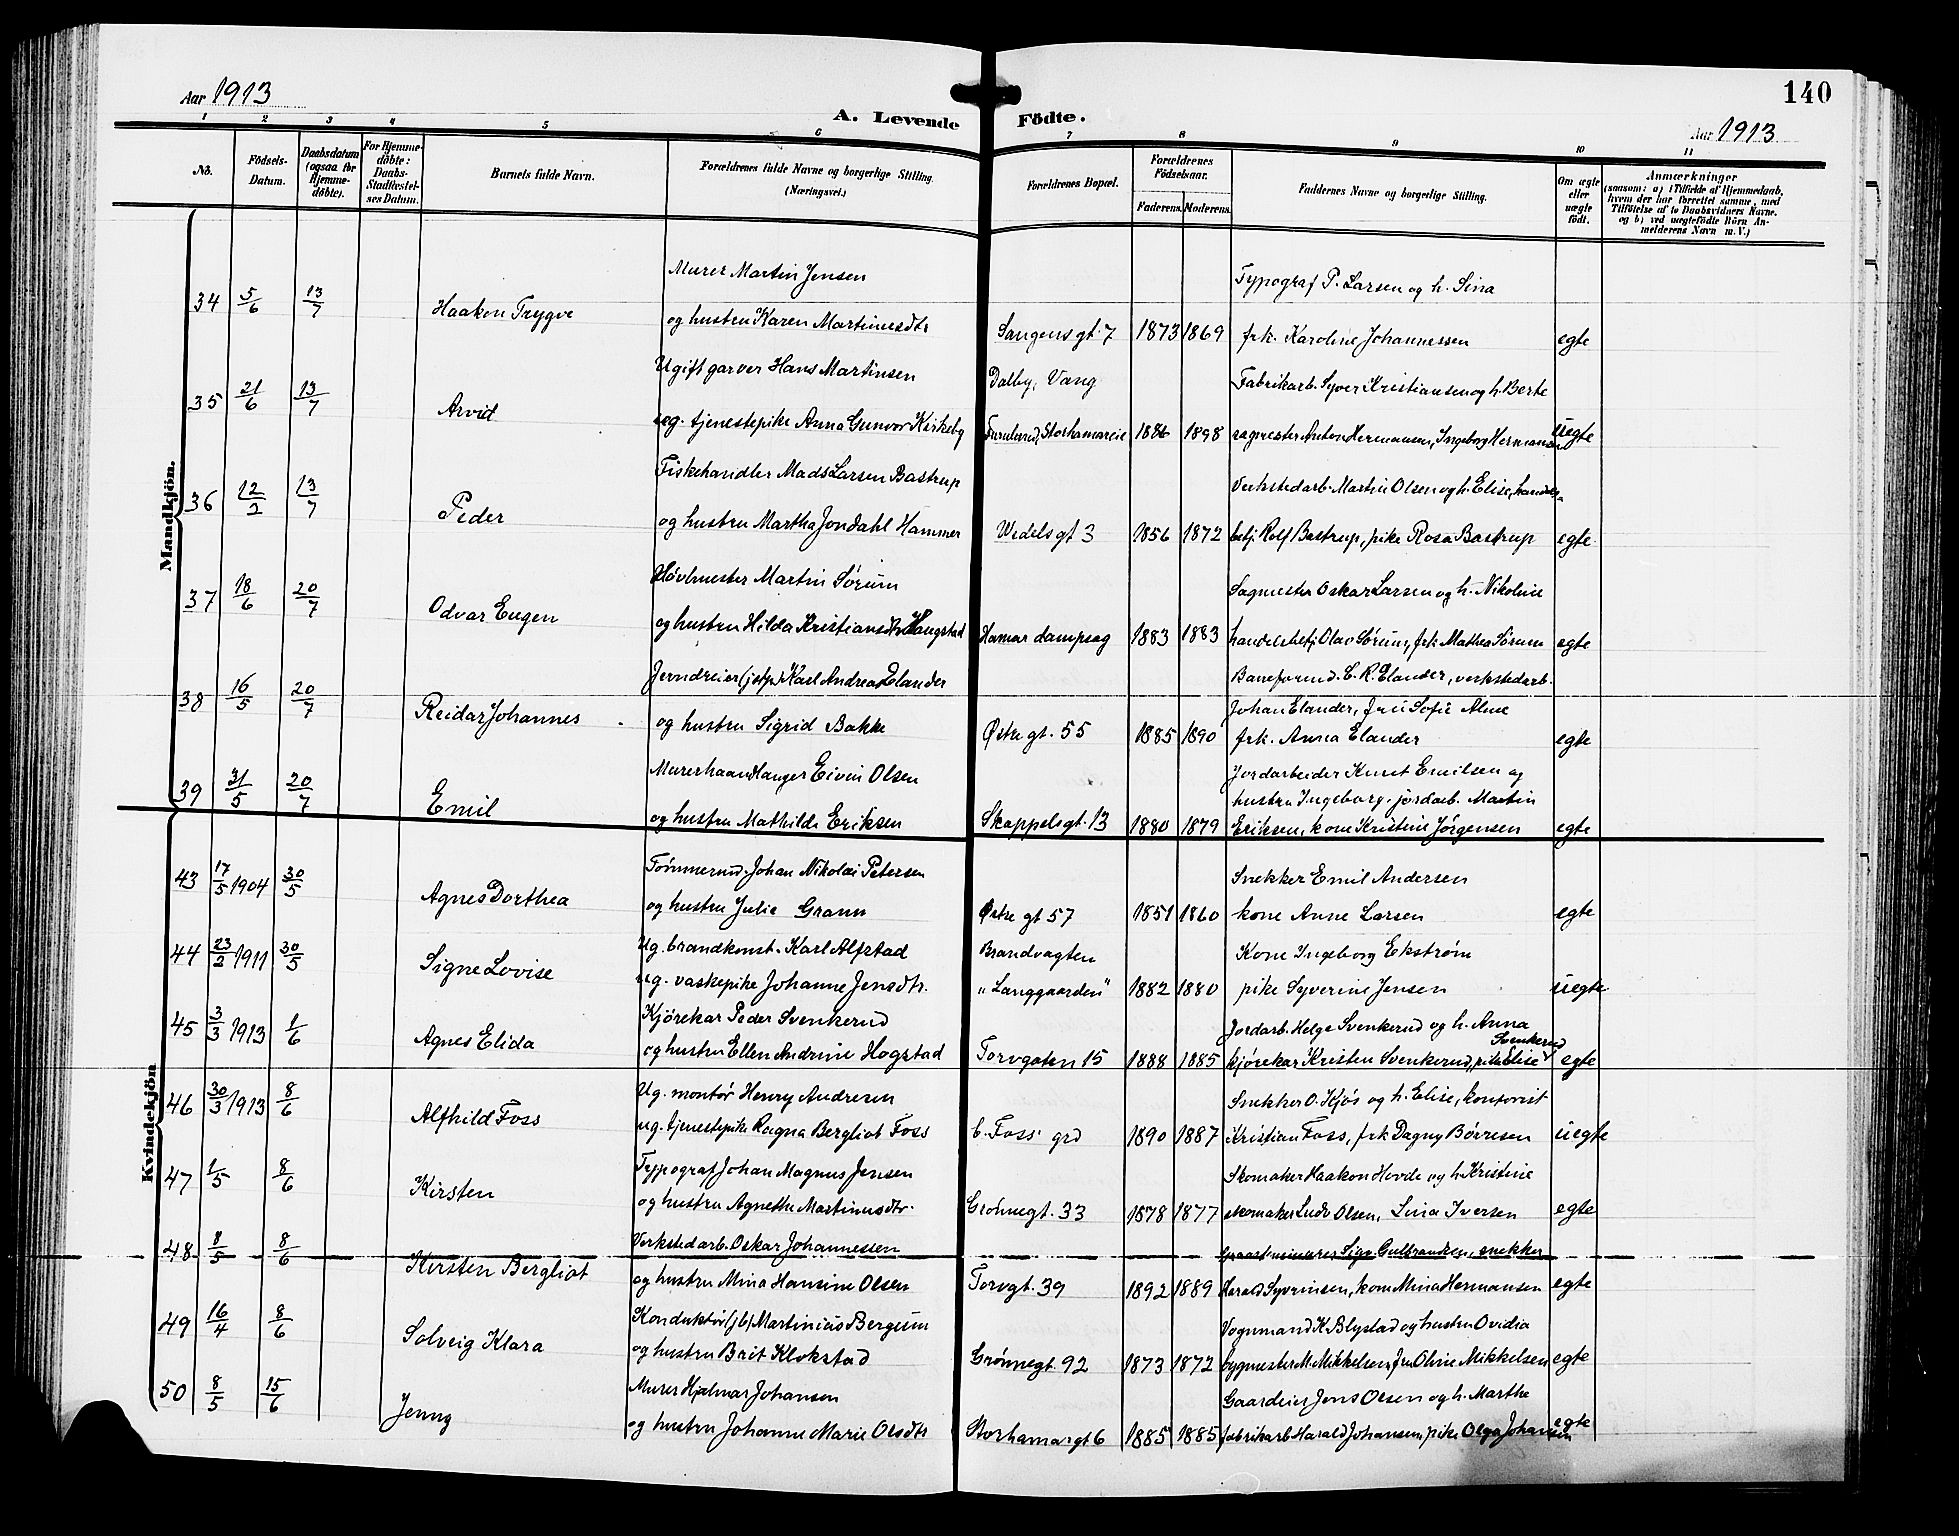 Aar 1913
140
A. Levende Födte.
Aar 1913
1 2 3 4 5 6 7 8 9 10 11
No. Födsels-Datum. Daabsdatum (ogsaa for Hjemme-döbte). For Hjemme-döbte: Daabs-Stadfæstel-ses Datum. Barnets fulde Navn. Forældrenes fulde Navne og borgerlige Stilling. (Næringsvei.) Forældrenes Bopæl. Forældrenes Födselsaar. Faderens. Moderens. Faddernes Navne og borgerlige Stilling. Om ægte eller uægte født. Anmærkninger (saasom: a) i Tilfælde af Hjemmedaab, hvem der har forrettet samme, med Tilføielse af to Daabsvidners Navne, og b) ved uægtefødte Börn An-melderens Navn m. V.)
Mandkjön.
Murer Martin Jensen Typograf P. Larsen og h. Sina
34 5/6 13/7 Haakon Trygve og hustru Karen Martinusdtr Sangens gt. 7 1873 1869 frk. Karoline Johannessen egte
Ugift garver Hans Martinsen Dalby, Vang Fabrikarb. Syver Kristiansen og h. Berte
35 21/6 13/7 Arvid ug. tjenestepike Anna Gunvor Kirkeby Furulund, Storhamareie 1886 1898 sagmester Anton Hermansen, Ingeborg Hermansen uegte
Fiskehandler Mads Larsen Bastrup Verkstedarb. Martin Olsen og h. Elise, handels-
36 12/2 13/7 Peder og hustru Martha Jondahl Hammer Wedels gt 3 1856 1872 betj. Rolf Bastrup, pike Rosa Bastrup egte
Høvlmester Martin Sørum Sagmester Oskar Larsen og h. Nikoline
37 18/6 20/7 Odvar Eugen og hustru Hilda Kristiansdtr Haugstad Hamar dampsag 1883 1883 handelsbetj. Olav Sørum, frk. Mathea Sørum egte
Jerndreier (jstp.) Karl Andreas Elander Baneformd. C. R. Elander, verkstedarb.
38 16/5 20/7 Reidar Johannes og hustru Sigrid Bakke Østre gt. 55 1885 1890 Johan Elander, fru Sofie Alme
frk. Anna Elander egte
Murerhaandlanger Eivin Olsen Jordarbeider Knut Emilsen og
39 31/5 20/7 Emil hustru Ingeborg, jordarb. Martin
og hustru Mathilde Eriksen Skappelsgt. 13 1880 1879 Eriksen, kone Kristine Jörgensen egte
Kvindekjön
43 17/5 1904 30/5 Agnes Dorthea Tömmermd. Johan Nikolai Petersen Snekker Emil Andersen
og hustru Julie Grann Østre gt 57 1851 1860 kone Anne Larsen egte
44 23/2 1911 30/5 Signe Lovise Ug. brandkonst. Karl Alfstad Brandvagten Kone Ingeborg Ekstrøm
ug. vaskepike Johanne Jensdtr. "Langgaarden" 1882 1880 pike Syverine Jensen uegte
45 3/3 1913 1/6 Agnes Elida Kjörekar Peder Svenkerud Jordarb. Helge Svenkerud og h. Anna
og hustru Ellen Andrine Hogstad Torvgaten 15 1888 1885 kjörekar Kristen Svenkerud, pike Elise Svenkerud egte
46 30/3 1913 8/6 Alfhild Foss Ug. montör Henry Andresen Snekker O. Kjös og h. Elise, kontorist
ug. tjenestepike Ragna Bergliot Foss C. Foss' grd 1890 1887 Kristian Foss, frk Dagny Börresen uegte
47 1/5 8/6 Kirsten Typograf Johan Magnus Jensen Skomaker Haakon Hovde og h. Kristine
og hustru Agnethe Martinusdtr. Grönnegt. 33 1878 1877 skomaker Ludv Olsen, Lina Iversen egte
48 8/5 8/6 Kirsten Bergliot Verkstedarb. Oskar Johannessen Sigv. Gulbrandsen, snekker
og hustru Mina Hansine Olsen Torvgt. 39 1892 1889 Harald Syvrinsen, kone Mina Hermansen egte
49 16/4 8/6 Solveig Klara Konduktör (jb.) Martinius Bergum Vognmand K. Blystad og hustru Ovidia
og hustru Brit Klokstad Grönnegt. 92 1873 1872 bygmester M. Mikkelsen, fru Oline Mikkelsen egte
50 8/5 15/6 Jenny Murer Hjalmar Johansen Gaardeier Jens Olsen og h. Marthe
og hustru Johanne Marie Olsdtr Storhamargt 6 1885 1885 fabrikarb Harald Johansen, pike Olga Johansen egte